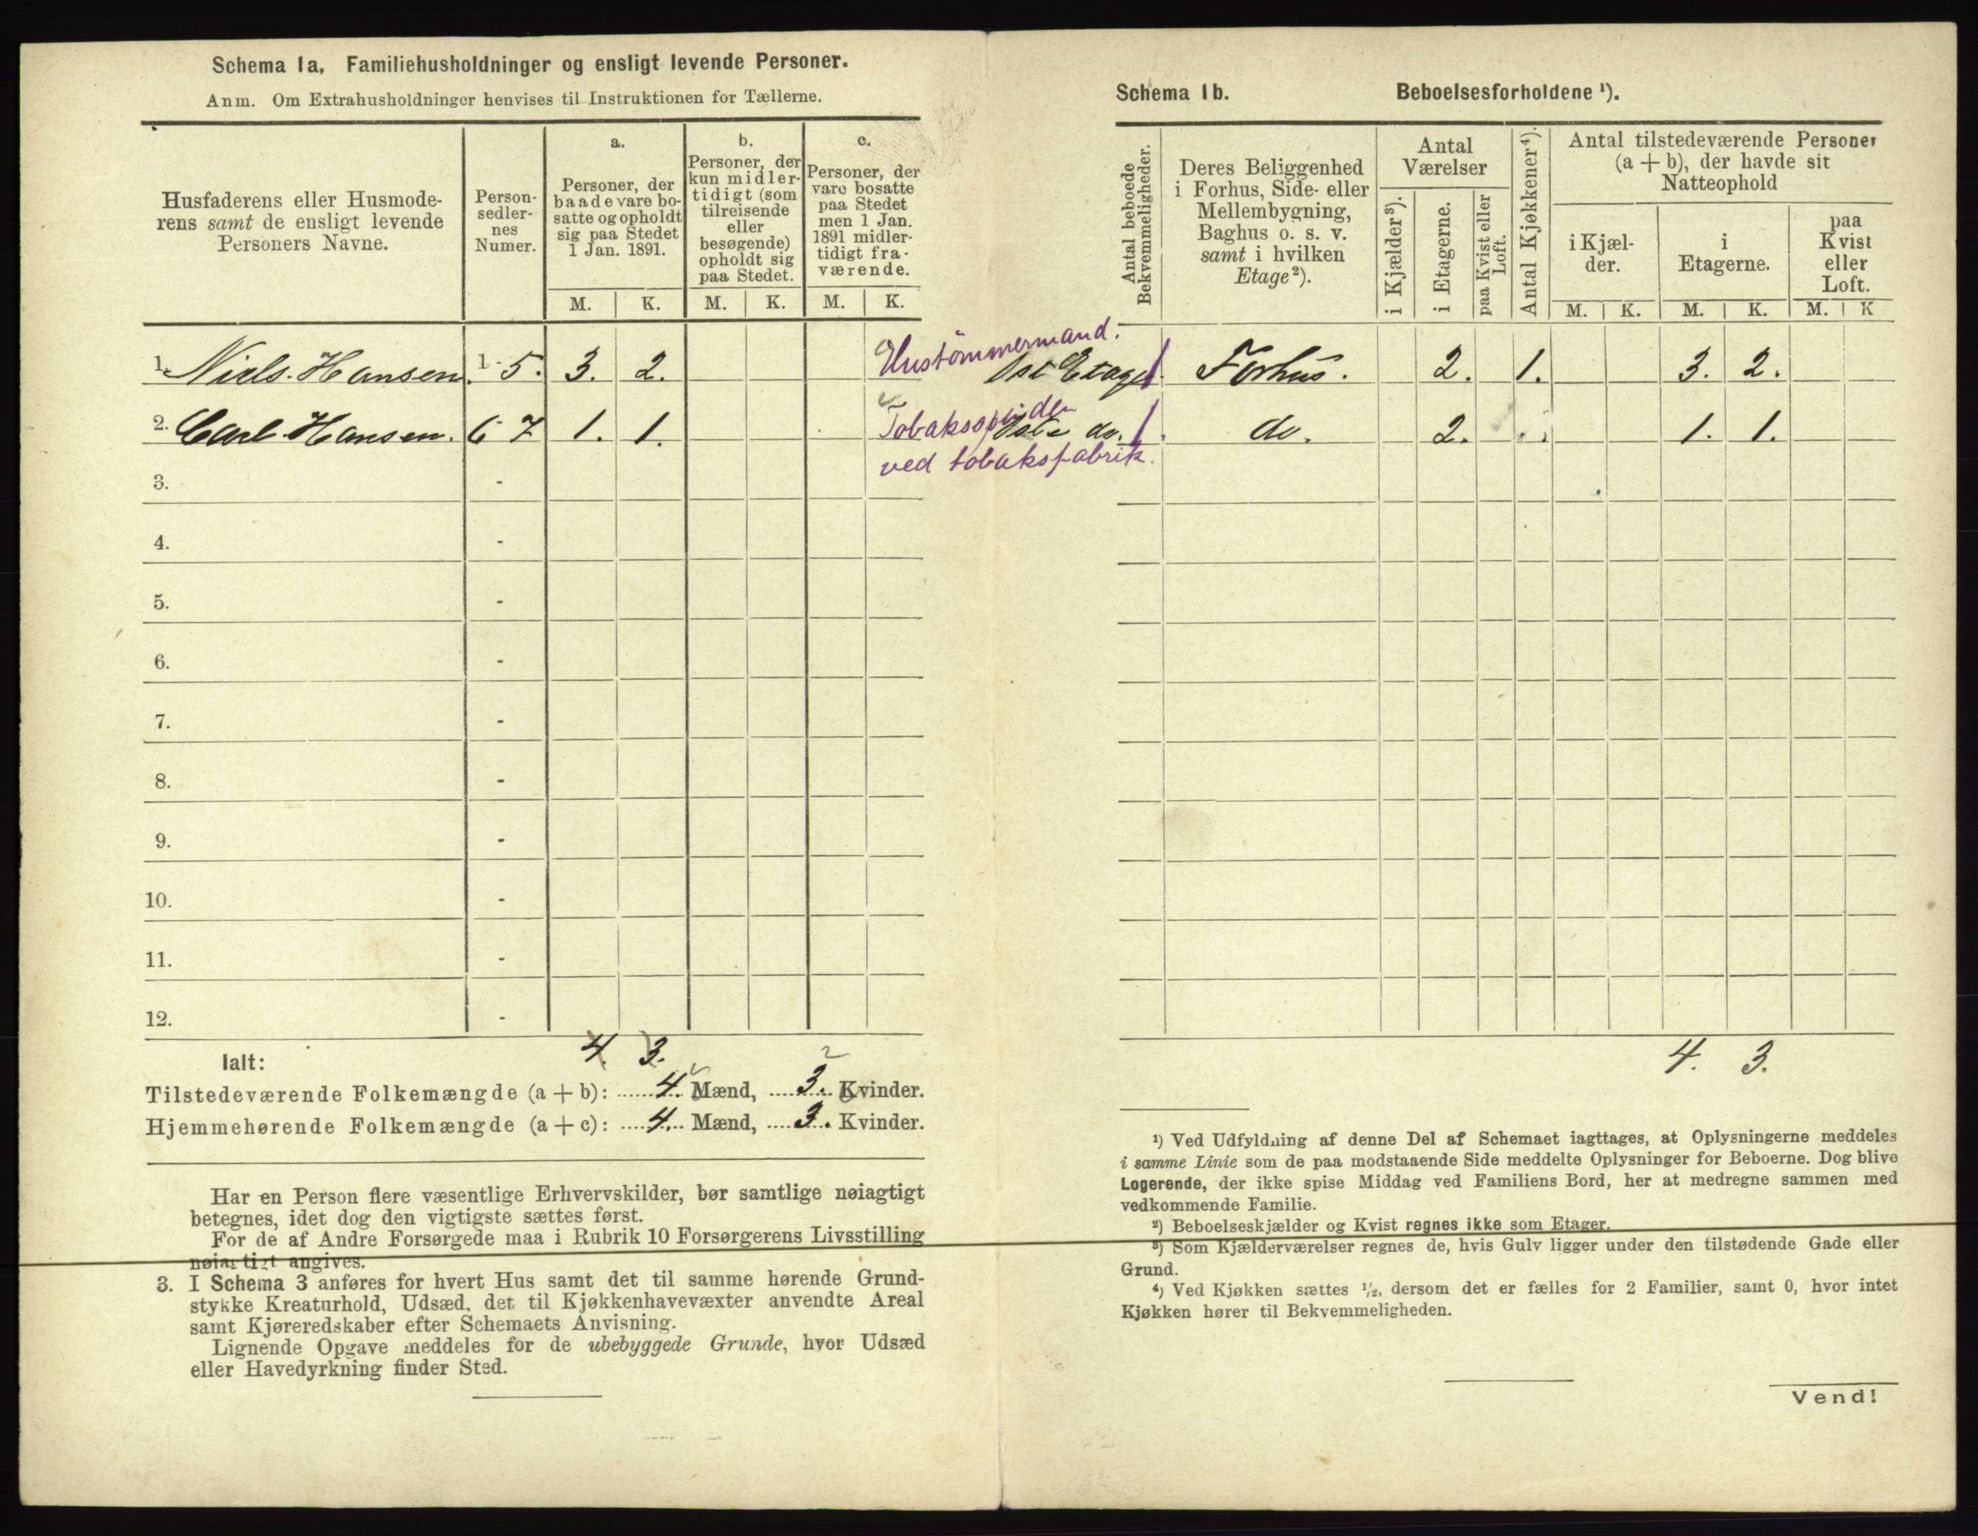 Schema 1a. Familiehusholdninger og ensligt levende Personer.
Anm. Om Extrahusholdninger henvises til Instruktionen for Tællerne.
Husfaderens eller Husmode-
rens samt de ensligt levende
Personers Navne.
Person-
sedler-
nes
Numer.
a.
Personer, der
baade vare bo-
satte og opholdt
sig paa Stedet
1 Jan. 1891.
b.
Personer, der
kun midler-
tidigt (som
tilreisende
eller
besøgende)
opholdt sig
paa Stedet.
c.
Personer, der
vare bosatte
paa Stedet
men 1 Jan.
1891 midler-
tidigt fra-
værende.
M. K. M. K. M. K.
1. Niels Hansen. 1-5. 3. 2. Hustömmermand.
1st Etage
2. Carl Hansen. 6-7 1. 1. Tobaksspinder do.
ved tobaksfabrik.
3. -
4. -
5. -
6. -
7. -
8. -
9. -
10. -
11. -
12. -
Ialt: 4. 3.
Tilstedeværende Folkemængde (a + b): 4. Mænd, 3. Kvinder.
Hjemmehørende Folkemængde (a + c): 4. Mænd, 3. Kvinder.
Har en Person flere væsentlige Erhvervskilder, bør samtlige nøiagtigt
betegnes, idet dog den vigtigste sættes først.
For de af Andre Forsørgede maa i Rubrik 10 Forsørgerens Livsstilling
nøiagtigt angives.
3. I Schema 3 anføres for hvert Hus samt det til samme hørende Grund-
stykke Kreaturhold, Udsæd, det til Kjøkkenhavevæxter anvendte Areal
samt Kjøreredskaber efter Schemaets Anvisning.
Lignende Opgave meddeles for de ubebyggede Grunde, hvor Udsæd
eller Havedyrkning finder Sted.
Schema 1b. Beboelsesforholdene ¹).
Antal beboede
Bekvemmeligheder.
Deres Beliggenhed
i Forhus, Side- eller
Mellembygning,
Baghus o. s. v.
samt i hvilken
Etage²).
Antal
Værelser
i Kjælder³).
i Etagerne.
paa Kvist eller
Loft.
Antal Kjøkkener⁴).
Antal tilstedeværende Personer
(a + b), der havde sit
Natteophold
i Kjæl-
der.
i
Etagerne.
paa
Kvist
eller
Loft.
M. K. M. K. M. K
1 Forhus. 2. 1. 3. 2.
1. do. 2. 1. 1.
4. 3.
¹) Ved Udfyldning af denne Del af Schemaet iagttages, at Oplysningerne meddeles
i samme Linie som de paa modstaaende Side meddelte Oplysninger for Beboerne. Dog blive
Logerende, der ikke spise Middag ved Familiens Bord, her at medregne sammen med
vedkommende Familie.
²) Beboelseskjælder og Kvist regnes ikke som Etager.
³) Som Kjælderværelser regnes de, hvis Gulv ligger under den tilstødende Gade eller
Grund.
⁴) Ved Kjøkken sættes ½, dersom det er fælles for 2 Familier, samt 0, hvor intet
Kjøkken hører til Bekvemmeligheden.
Vend!